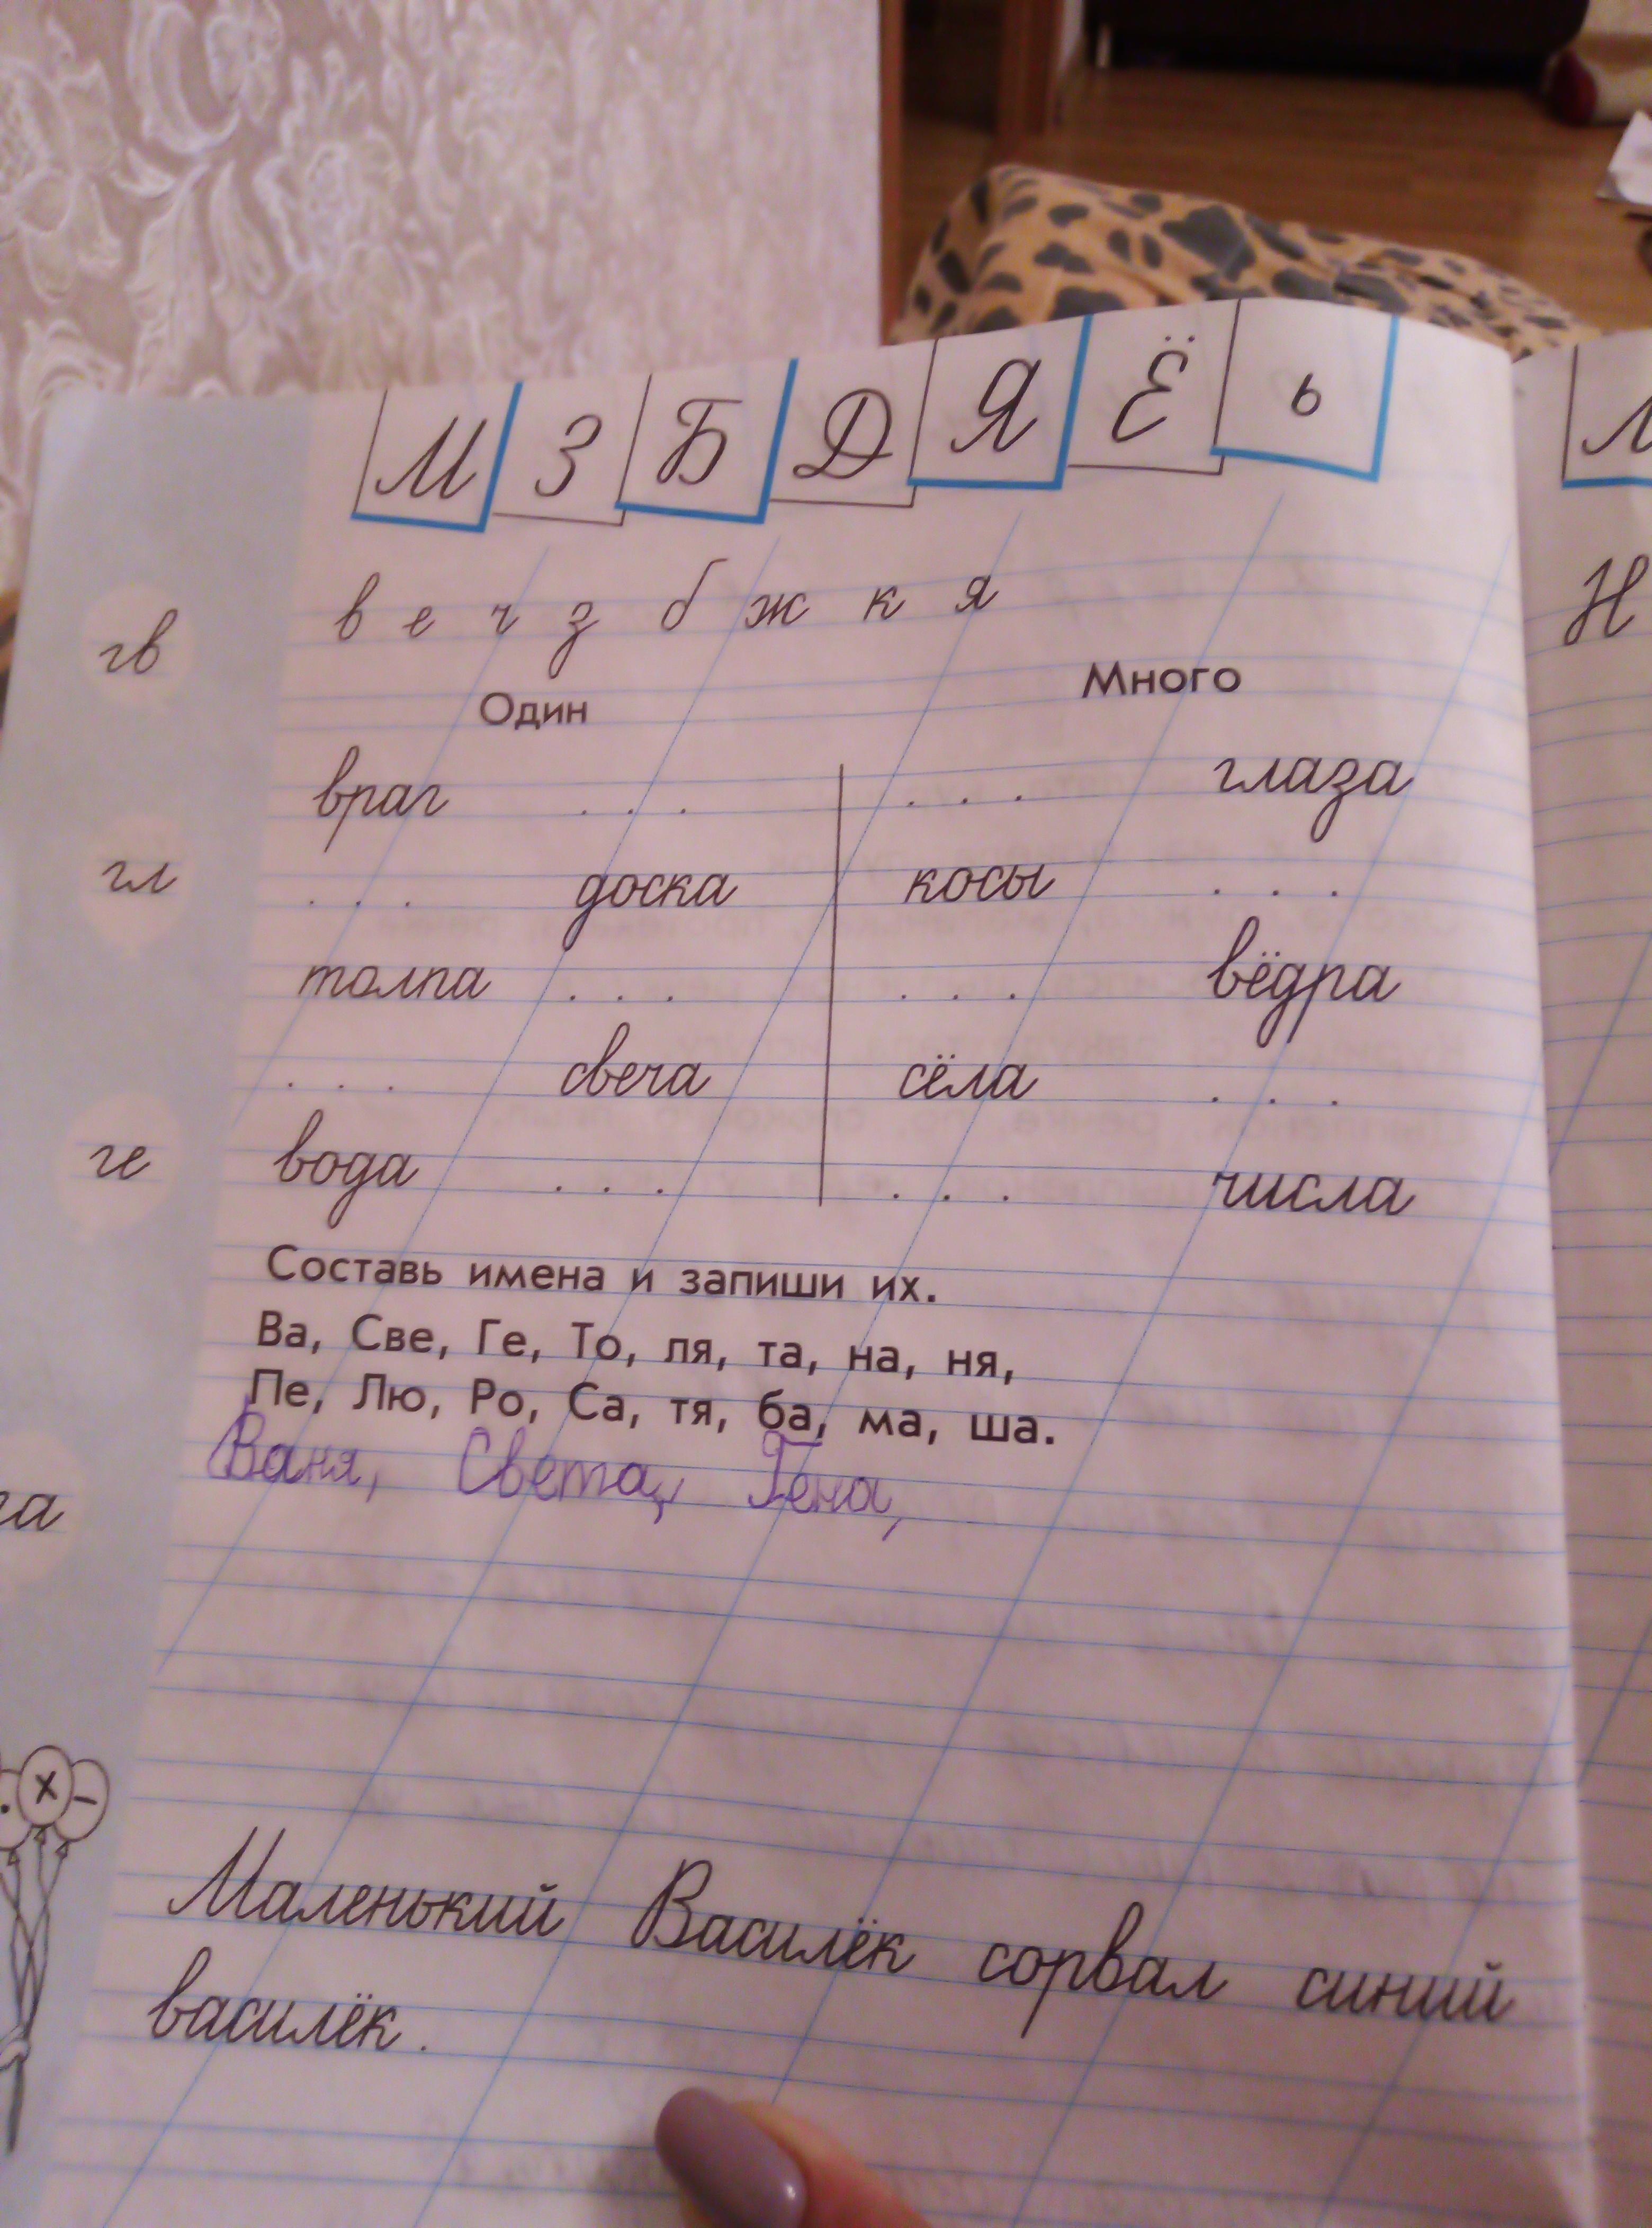 М З Б Д Я Ё ь
Л
в е ч з б ж к я
Н
гв
Один Много
враг . . . . . . глаза
гл
. . . доска косы . . .
толпа . . . . . . вёдра
. . . свеча сёла . . .
ге
вода . . . . . . числа
Составь имена и запиши их.
Ва, Све, Ге, То, ля, та, на, ня,
Пе, Лю, Ро, Са, тя, ба, ма, ша.
Ваня, Света, Гена,
га
Маленький Василёк сорвал синий
василёк.